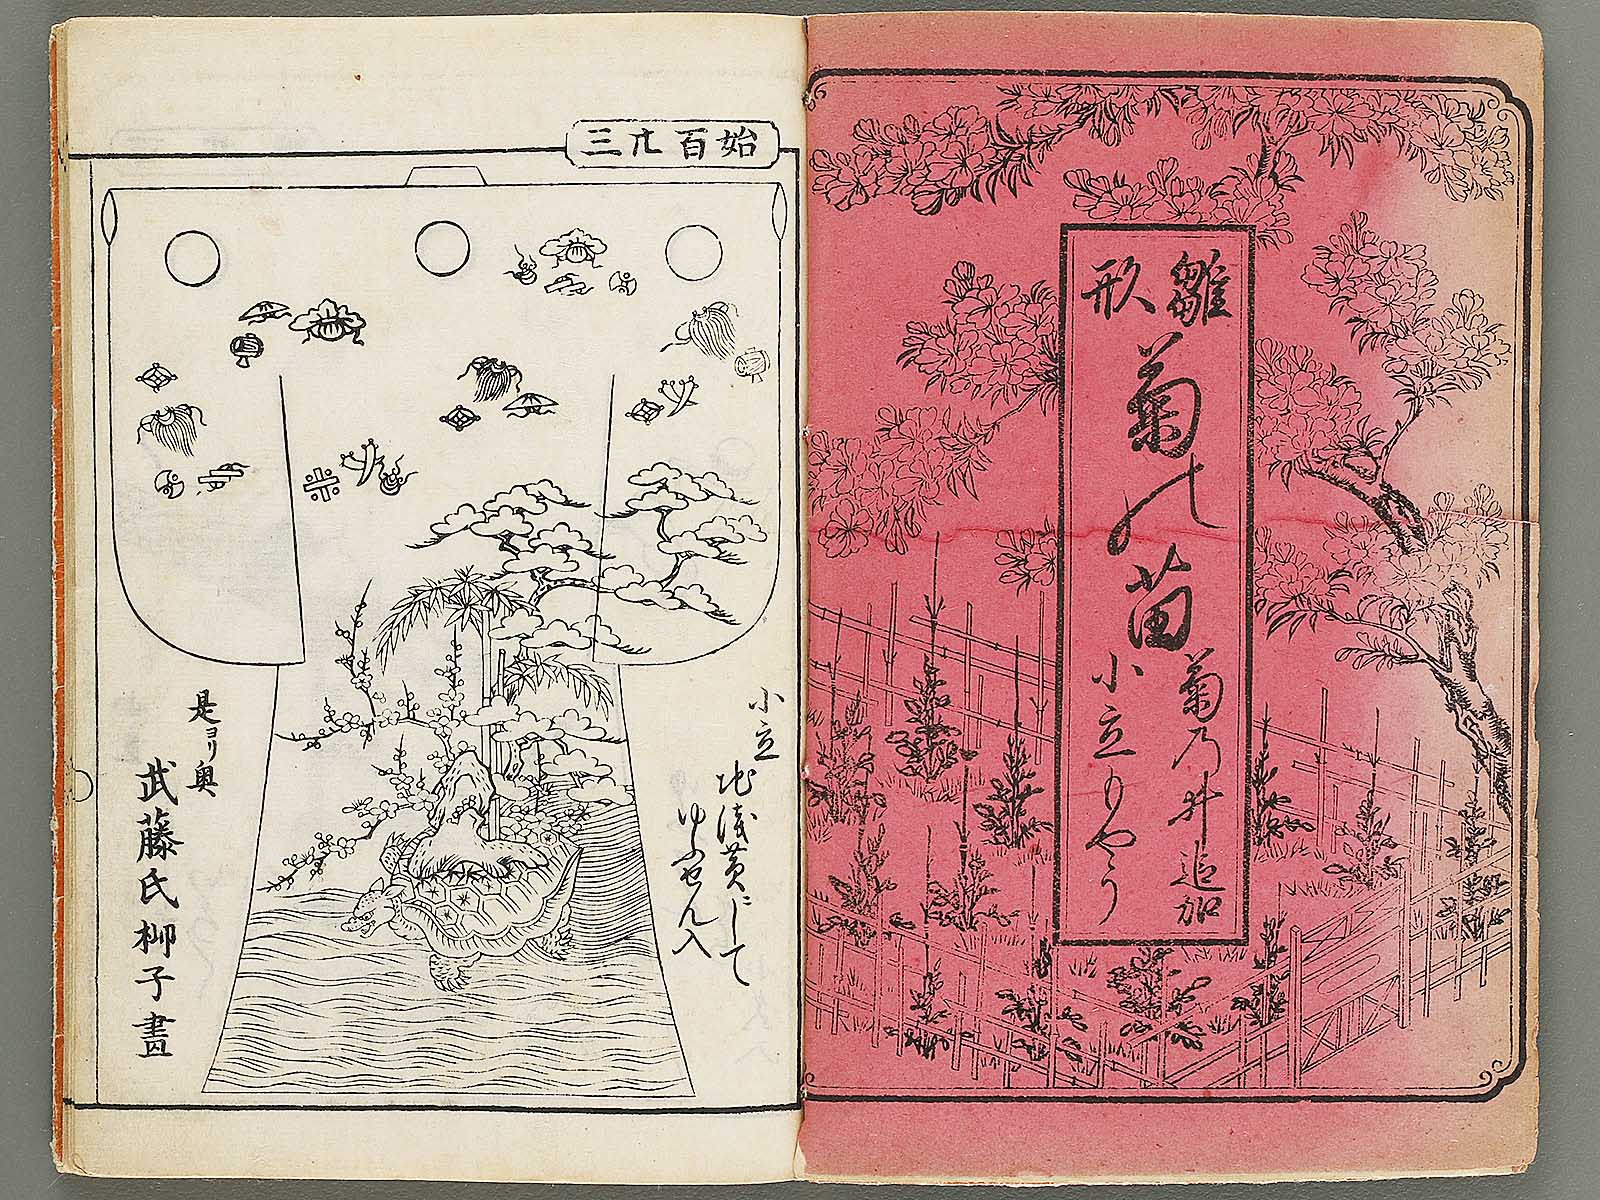 雛形
菊の苗
菊乃井追加
小立もやう
始百廿三
小立
地浅黄にして
ゆふせん入
是ヨリ奥
武藤氏柳子畫